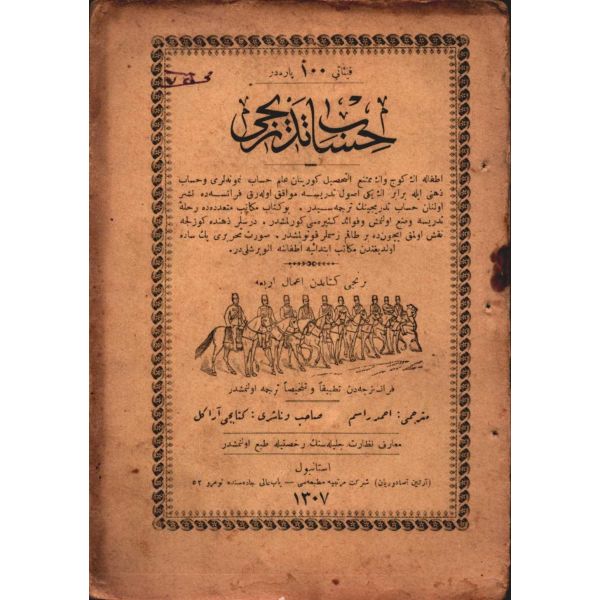 فیئاتی ١٠٠ پاره‌در
حساب تدریجی
اطفاله اڭ كوج واڭ ممتنع التحصیل كورینان علم حساب نمونه‌لری وحساب
ذهنی ایله برابر اڭ یكی اصول تدریسه موافق اوله‌رق فرانسه‌ده نشر
اولنان حساب تدریجینك ترجمه سیدر . بوكتاب مكاتب متعدده‌ده رحلهٔ
تدریسه وضع اولنمش وفوائد كثیره‌سی كورلمشدر . درسلر ذهنده كوزلجه
نقش اولمق ایچون‌ده بر طاقم رسملر قونولمشدر . صورت محرری پك ساده
اولدیغندن مكاتب ابتدائیه اطفالنه الویرشلی‌در.
برنجی كتابدن اعمال اربعه
فرانسزجه‌دن تطبیقاً و تلخیصاً ترجمه اولنمشدر
مترجمی : احمد راسم صاحب وناشری : كتابجی آراكل
معارف نظارت جلیله‌سنك رخصتیله طبع اولنمشدر
استانبول
(آرتین آصادوریان) شركت مرتبیه مطبعه‌سی — باب‌عالی جاده‌سنده نومرو ٥٢
١٣٠٧